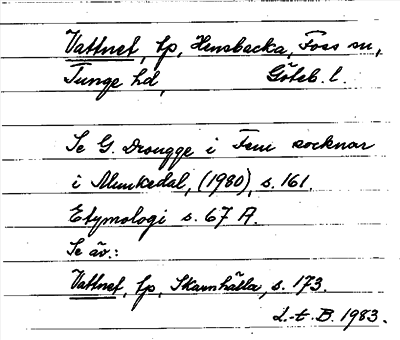 Vattnet, tp, Hensbacka, Foss sn,
Tunge hd, Göteb. l.
Se G. Drougge i Fem socknar
i Munkedal, (1980), s. 161.
Etymologi s. 67 A.
Se äv.:
Vattnet, tp, Skarnhälla, s. 173.
L-t. B. 1983.